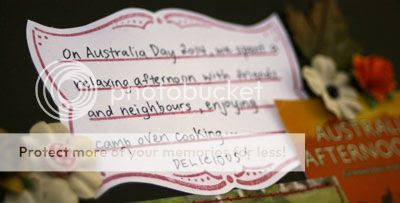 On Australia Day 2014, we spent a
relaxing afternoon with friends
and neighbours, enjoying
camp oven cooking...
DELICIOUS!
photobucket
Protect more of your memories for less!
AUSTRALIA
AFTERNOON